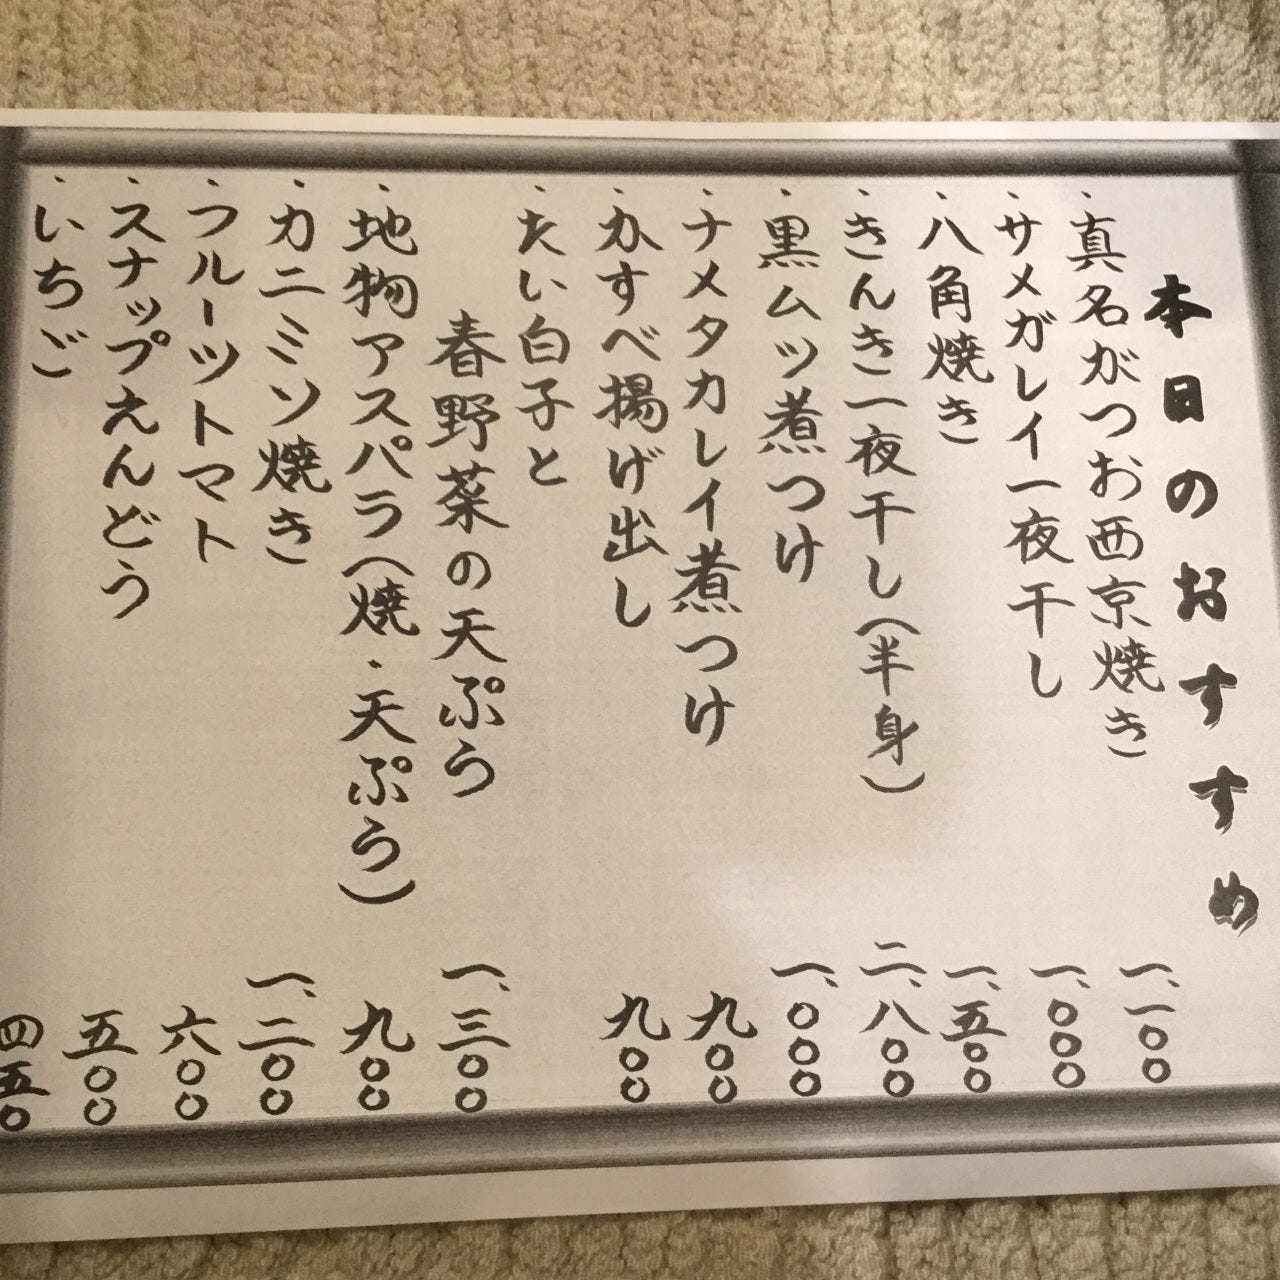 本日のおすすめ
・真名がつお西京焼き 一、一〇〇
・サメガレイ一夜干し 一、〇〇〇
・八角焼き 一、五〇〇
・きんき一夜干し(半身) 二、八〇〇
・黒ムツ煮つけ 一、〇〇〇
・ナメタカレイ煮つけ 九〇〇
・かすべ揚げ出し 九〇〇
・たい白子と
春野菜の天ぷら 一、三〇〇
・地物アスパラ(焼・天ぷら) 九〇〇
・カニミソ焼き 一、二〇〇
・フルーツトマト 六〇〇
・スナップえんどう 五〇〇
・いちご 四五〇